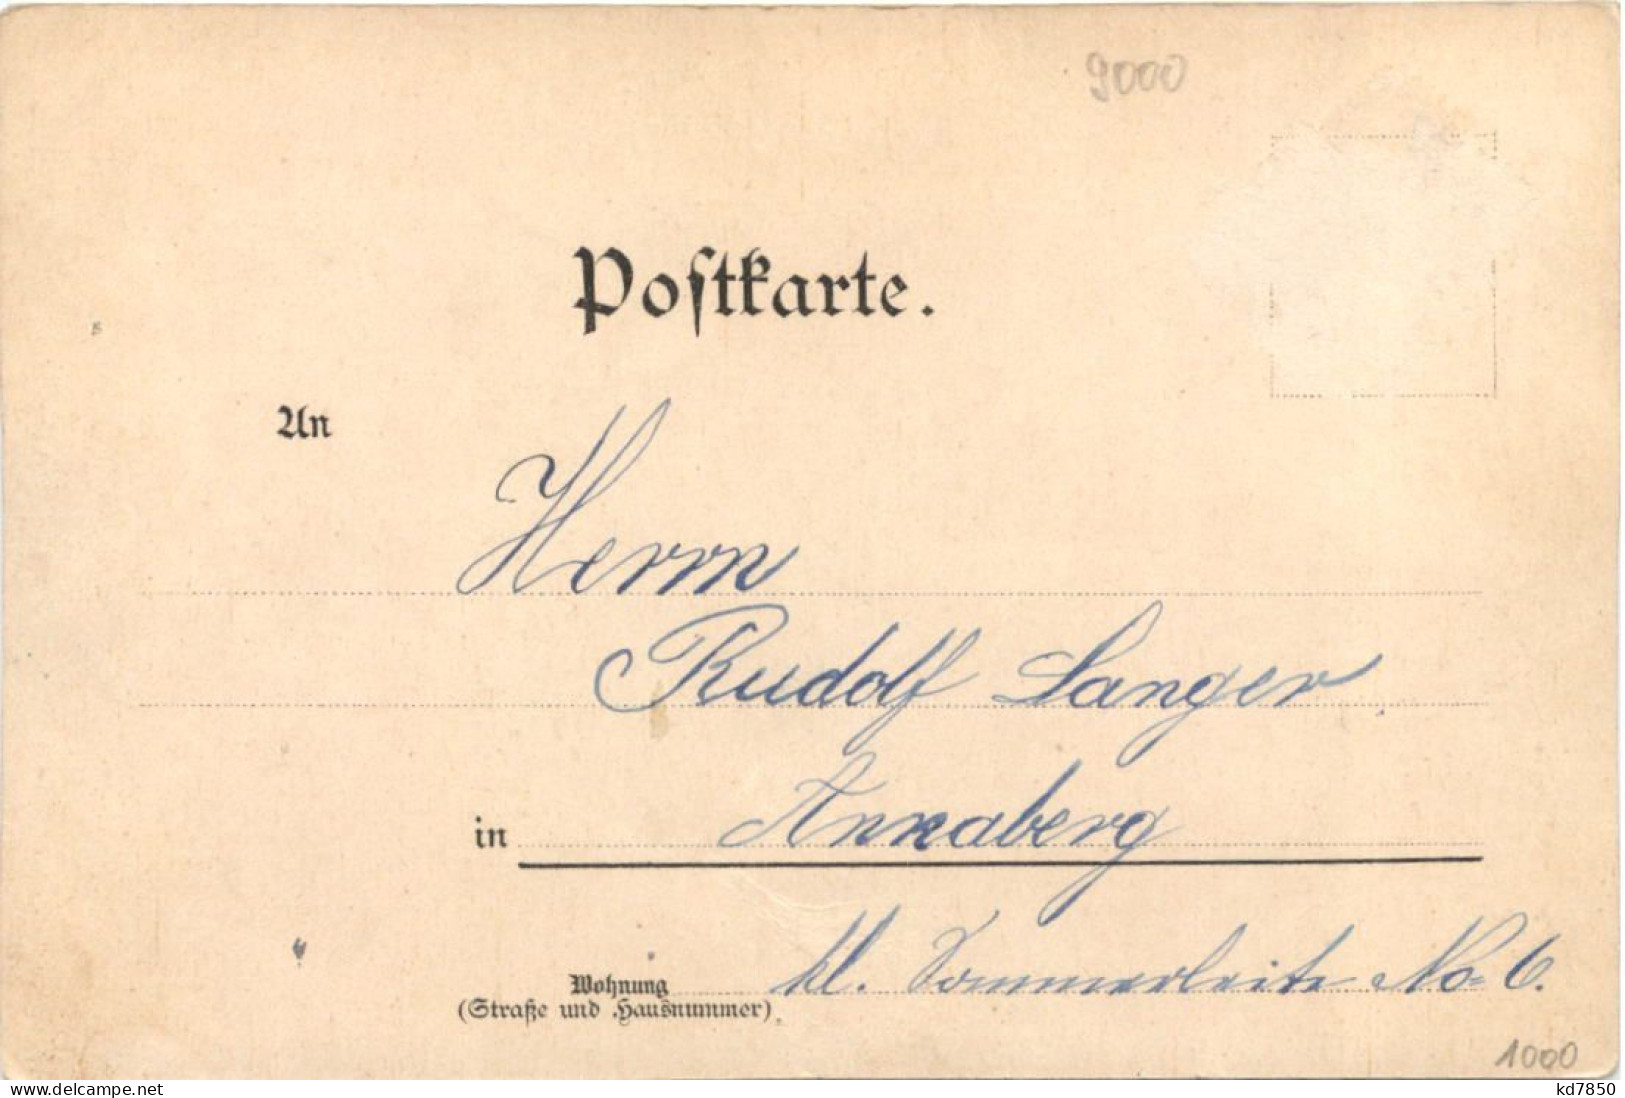 9000
Postkarte.
An
Herrn
Rudolf Langer
in Annaberg
Wohnung kl. Sommerleite No 6.
(Straße und Hausnummer)
1000
www.delcampe.net
kd7850